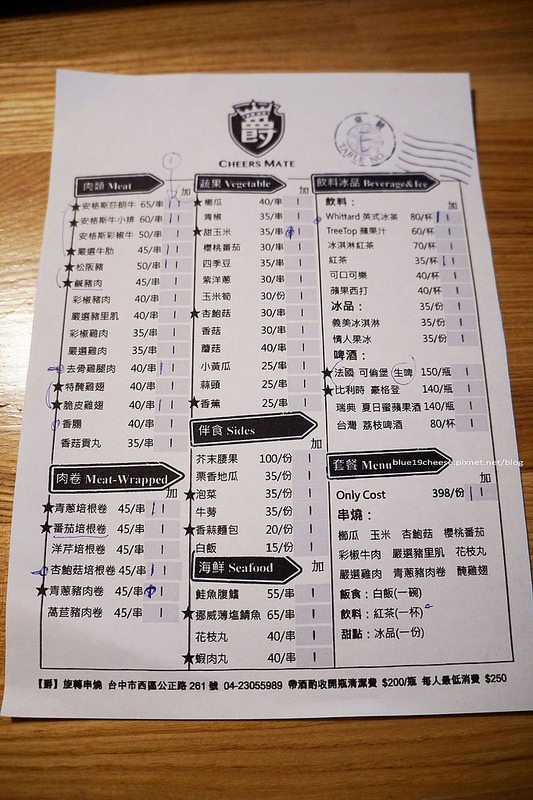 爵
CHEERS MATE
桌號
TABLE NO
肉類 Meat
加
★安格斯莎朗牛 65/串
★安格斯牛小排 60/串
安格斯彩椒牛 50/串
★嚴選牛肋 45/串
★松阪豬 50/串
★鹹豬肉 45/串
彩椒豬肉 40/串
嚴選豬里肌 40/串
彩椒雞肉 35/串
嚴選雞肉 35/串
去骨雞腿肉 40/串
★特醃雞翅 40/串
★脆皮雞翅 40/串
香腸 40/串
香菇貢丸 35/串
肉卷 Meat-Wrapped
加
★青蔥培根卷 45/串
★番茄培根卷 45/串
洋芹培根卷 45/串
杏鮑菇培根卷 45/串
★青蔥豬肉卷 45/串
萵苣豬肉卷 45/串
蔬果 Vegetable
加
★櫛瓜 40/串
青椒 35/串
★甜玉米 35/串
櫻桃番茄 30/串
四季豆 35/串
紫洋蔥 30/串
玉米筍 30/份
★杏鮑菇 30/串
香菇 35/串
蘑菇 40/串
小黃瓜 25/串
蒜頭 25/串
★香蕉 25/串
伴食 Sides
加
芥末腰果 100/份
栗香地瓜 35/份
★泡菜 35/份
牛蒡 35/份
★香蒜麵包 20/份
白飯 15/份
海鮮 Seafood
加
鮭魚腹鰭 55/串
★挪威薄塩鯖魚 65/串
花枝丸 40/串
★蝦肉丸 40/串
飲料冰品 Beverage&Ice
加
飲料：
Whittard 英式冰茶 80/杯
TreeTop 蘋果汁 60/杯
冰淇淋紅茶 70/杯
紅茶 35/杯
可口可樂 40/杯
蘋果西打 40/杯
冰品： 35/份
義美冰淇淋 35/份
情人果冰 35/份
啤酒：
★法國 可倫堡 生啤 150/瓶
★比利時 豪格登 140/瓶
瑞典 夏日蜜蘋果酒 140/瓶
台灣 荔枝啤酒 80/杯
套餐 Menu
加
blue19cheese.pixnet.net/blog
Only Cost 398/份
串燒：
櫛瓜 玉米 杏鮑菇 櫻桃番茄
彩椒牛肉 嚴選豬里肌 花枝丸
嚴選雞肉 青蔥豬肉卷 醃雞翅
飯食：白飯(一碗)
飲料：紅茶(一杯)
甜點：冰品(一份)
【爵】旋轉串燒 台中市西區公正路 261 號 04-23055989 帶酒酌收開瓶清潔費 $200/瓶 每人最低消費 $250